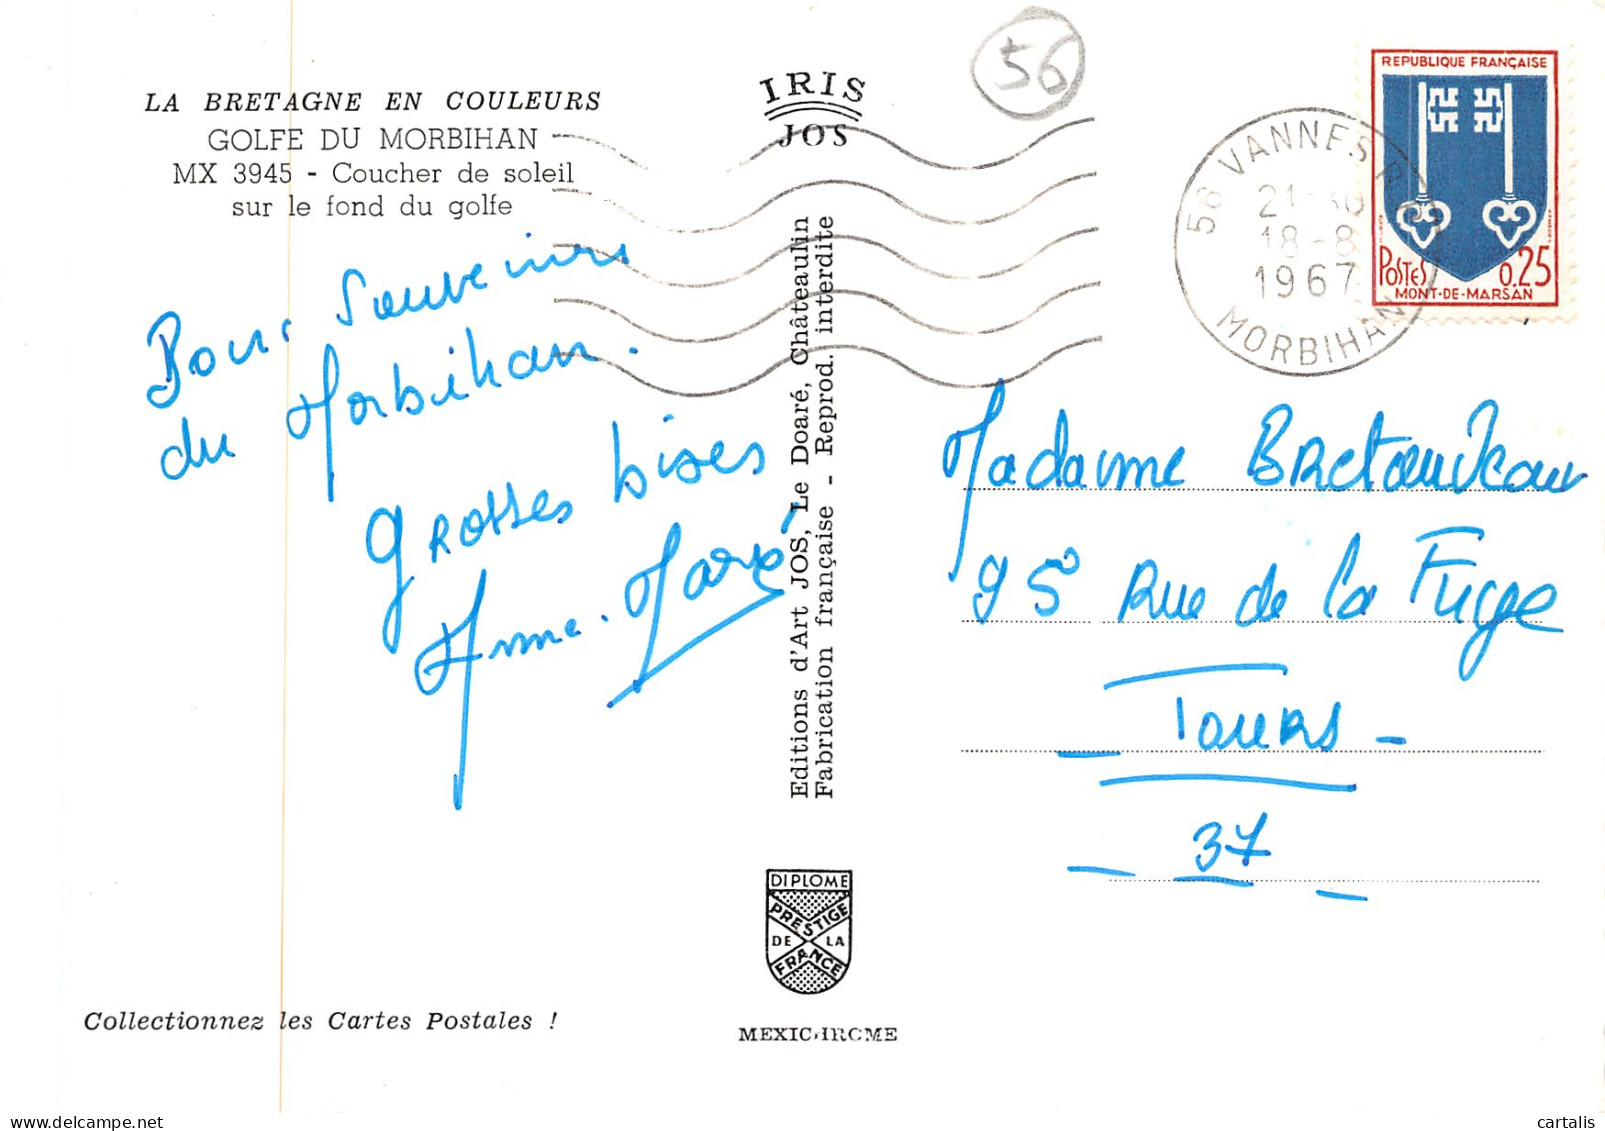 LA BRETAGNE EN COULEURS
GOLFE DU MORBIHAN
MX 3945 - Coucher de soleil
sur le fond du golfe
Bons Souvenirs
du Morbihan.
Grosses bises
Anne-
IRIS
JOS
Editions d'Art JOS, Le Doaré, Châteaulin
Fabrication française - Reprod. interdite
DIPLOME
PRESTIGE
DE LA
FRANCE
MEXICHROME
Collectionnez les Cartes Postales !
56
56 VANNES R.P.
18-8
1967
MORBIHAN
REPUBLIQUE FRANÇAISE
POSTES 0,25
MONT-DE-MARSAN
Madame
95 Rue de la Fuye
Tours -
37
cartalis